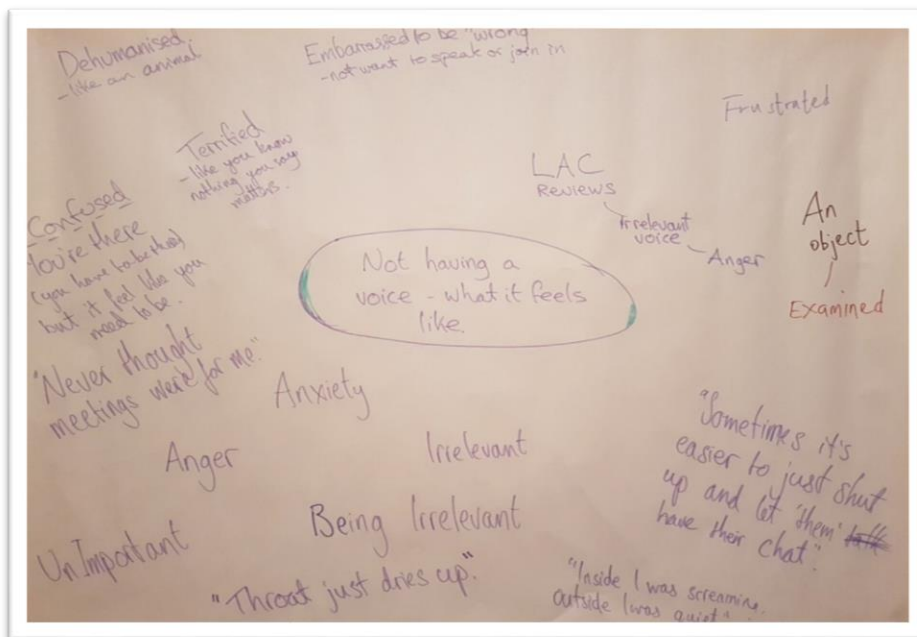 Dehumanised.
- like an animal
Embarrassed to be "wrong
- not want to speak or join in
Frustrated
Terrified
- like you know
nothing you say
matters.
LAC
REVIEWS
Irrelevant
voice
Anger
An
object
Examined
Confused
You're there
(you have to be there)
but it feel like you
need to be.
Not having a
voice - what it feels
like.
"Never thought
meetings were for me."
Anxiety
Anger
Irrelevant
Being Irrelevant
UnImportant
"Throat just dries up."
"Sometimes it's
easier to just shut
up and let 'them' talk
have their chat."
"Inside I was screaming,
outside I was quiet"